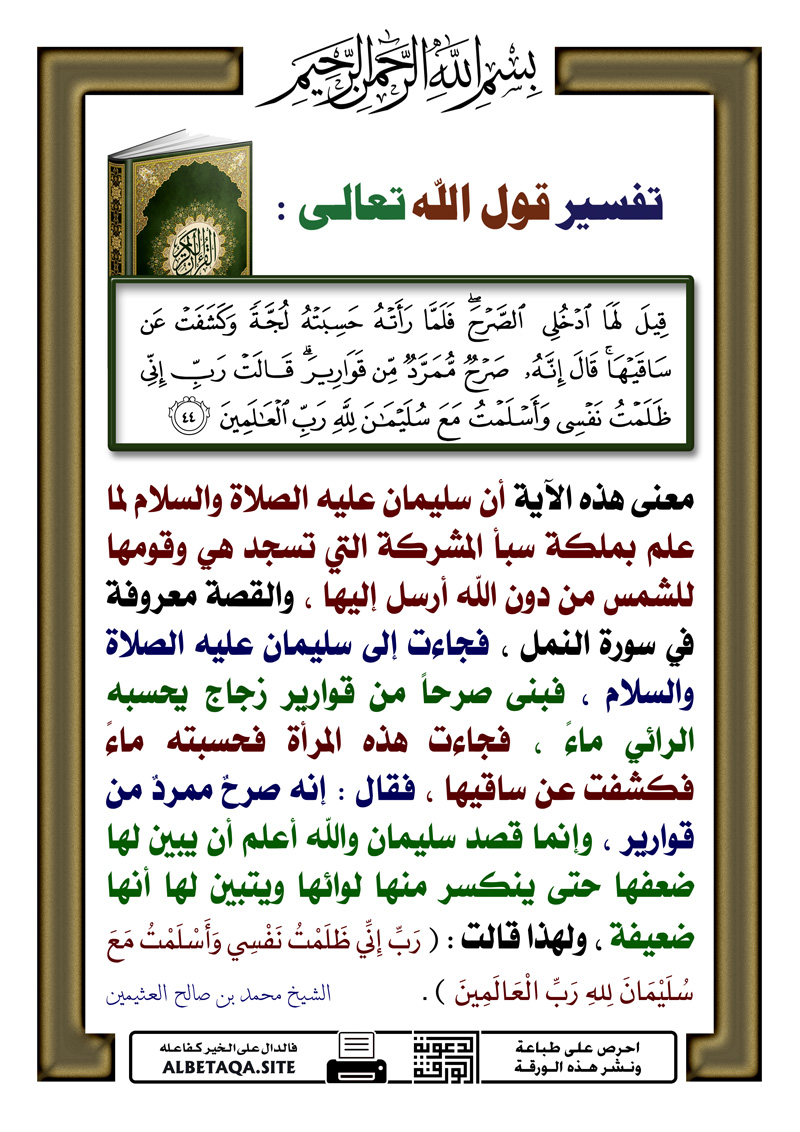 بِسْمِ اللَّهِ الرَّحْمَٰنِ الرَّحِيمِ
القرآن الكريم
تفسير قول الله تعالى :
قِيلَ لَهَا ٱدْخُلِى ٱلصَّرْحَ ۖ فَلَمَّا رَأَتْهُ حَسِبَتْهُ لُجَّةً وَكَشَفَتْ عَن
سَاقَيْهَا ۚ قَالَ إِنَّهُۥ صَرْحٌ مُّمَرَّدٌ مِّن قَوَارِيرَ ۗ قَالَتْ رَبِّ إِنِّى
ظَلَمْتُ نَفْسِى وَأَسْلَمْتُ مَعَ سُلَيْمَٰنَ لِلَّهِ رَبِّ ٱلْعَٰلَمِينَ ٤٤
معنى هذه الآية أن سليمان عليه الصلاة والسلام لما
علم بملكة سبأ المشركة التي تسجد هي وقومها
للشمس من دون الله أرسل إليها ، والقصة معروفة
في سورة النمل ، فجاءت إلى سليمان عليه الصلاة
والسلام ، فبنى صرحاً من قوارير زجاج يحسبه
الرائي ماءً ، فجاءت هذه المرأة فحسبته ماءً
فكشفت عن ساقيها ، فقال : إنه صرحٌ ممردٌ من
قوارير ، وإنما قصد سليمان والله أعلم أن يبين لها
ضعفها حتى ينكسر منها لوائها ويتبين لها أنها
ضعيفة ، ولهذا قالت : ( رَبِّ إِنِّي ظَلَمْتُ نَفْسِي وَأَسْلَمْتُ مَعَ
سُلَيْمَانَ لِلهِ رَبِّ الْعَالَمِينَ ) . الشيخ محمد بن صالح العثيمين
احرص على طباعة
ونشر هذه الورقة
الورقة الدعوية
فالدال على الخير كفاعله
ALBETAQA.SITE